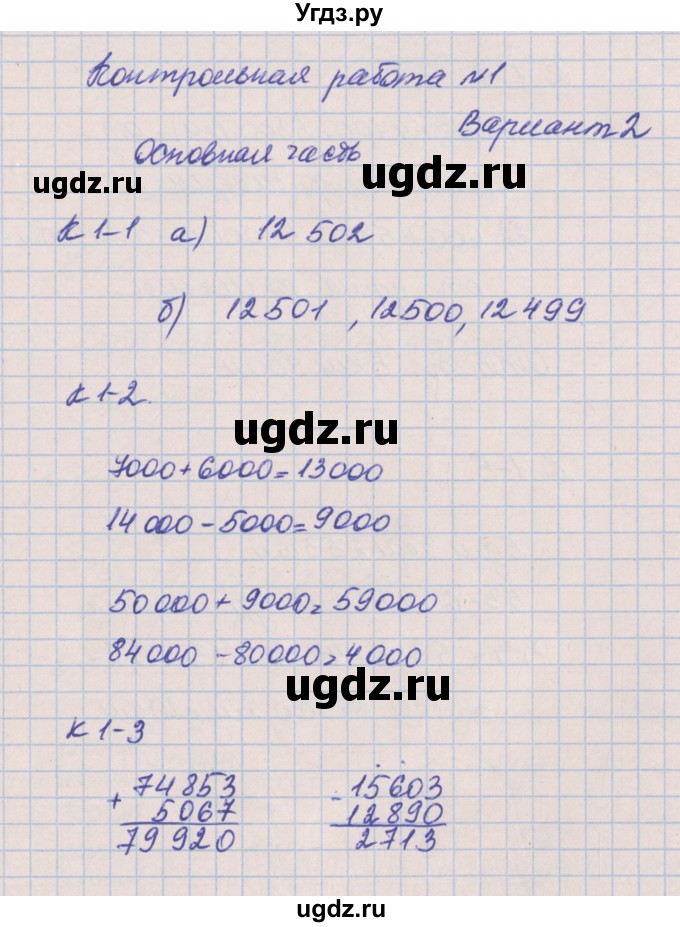 Угдз.ру
Контрольная работа №1
Вариант 2
Основная часть
ugdz.ru
ugdz.ru
К 1-1 а) 12 502
б) 12501, 12500, 12499
К 1-2.
ugdz.ru
7000+6000=13000
14000-5000=9000
50000+9000=59000
84000-80000=4000
ugdz.ru
К 1-3
+ 74853 - 15603
5067 12890
79920 2713
ugdz.ru